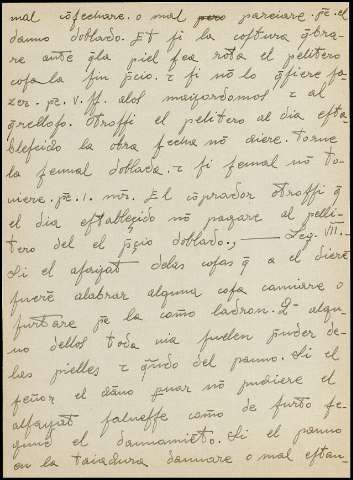 mal cõfechare. o mal pareiare. pe. el
danno doblado. Et si la costura q̃bra-
re ante q̃la piel sea rota el pelitero
cosa la sin p̃cio. τ si nõ lo q̃siere fa-
zer. pe. v. ss. alos maiordomos τ al
q̃relloso. Otrossi el pelitero al dia esta-
blescido la obra fecha nõ diere. torne
la sennal doblada. τ si sennal nõ to-
viere. pe. i. mr. El cõprador otrossi q̃
el dia establecido nõ pagare al pelli-
tero del el p̃cio doblado., — Leg. VII.-
Si el afayat delas cosas q̃ a el diere
fuerẽ alabrar alguna cosa camiare o
furtare pe la como ladron. Qe algu-
no dellos toda via suelen p̃nder de-
las pielles τ q̃ndo del panno. Si el
señor el dãno puar nõ pudiere el
alfayat saluesse como de furto se-
gund el dannamiẽto. Si el panno
en la taiadura dannare o mal estau-